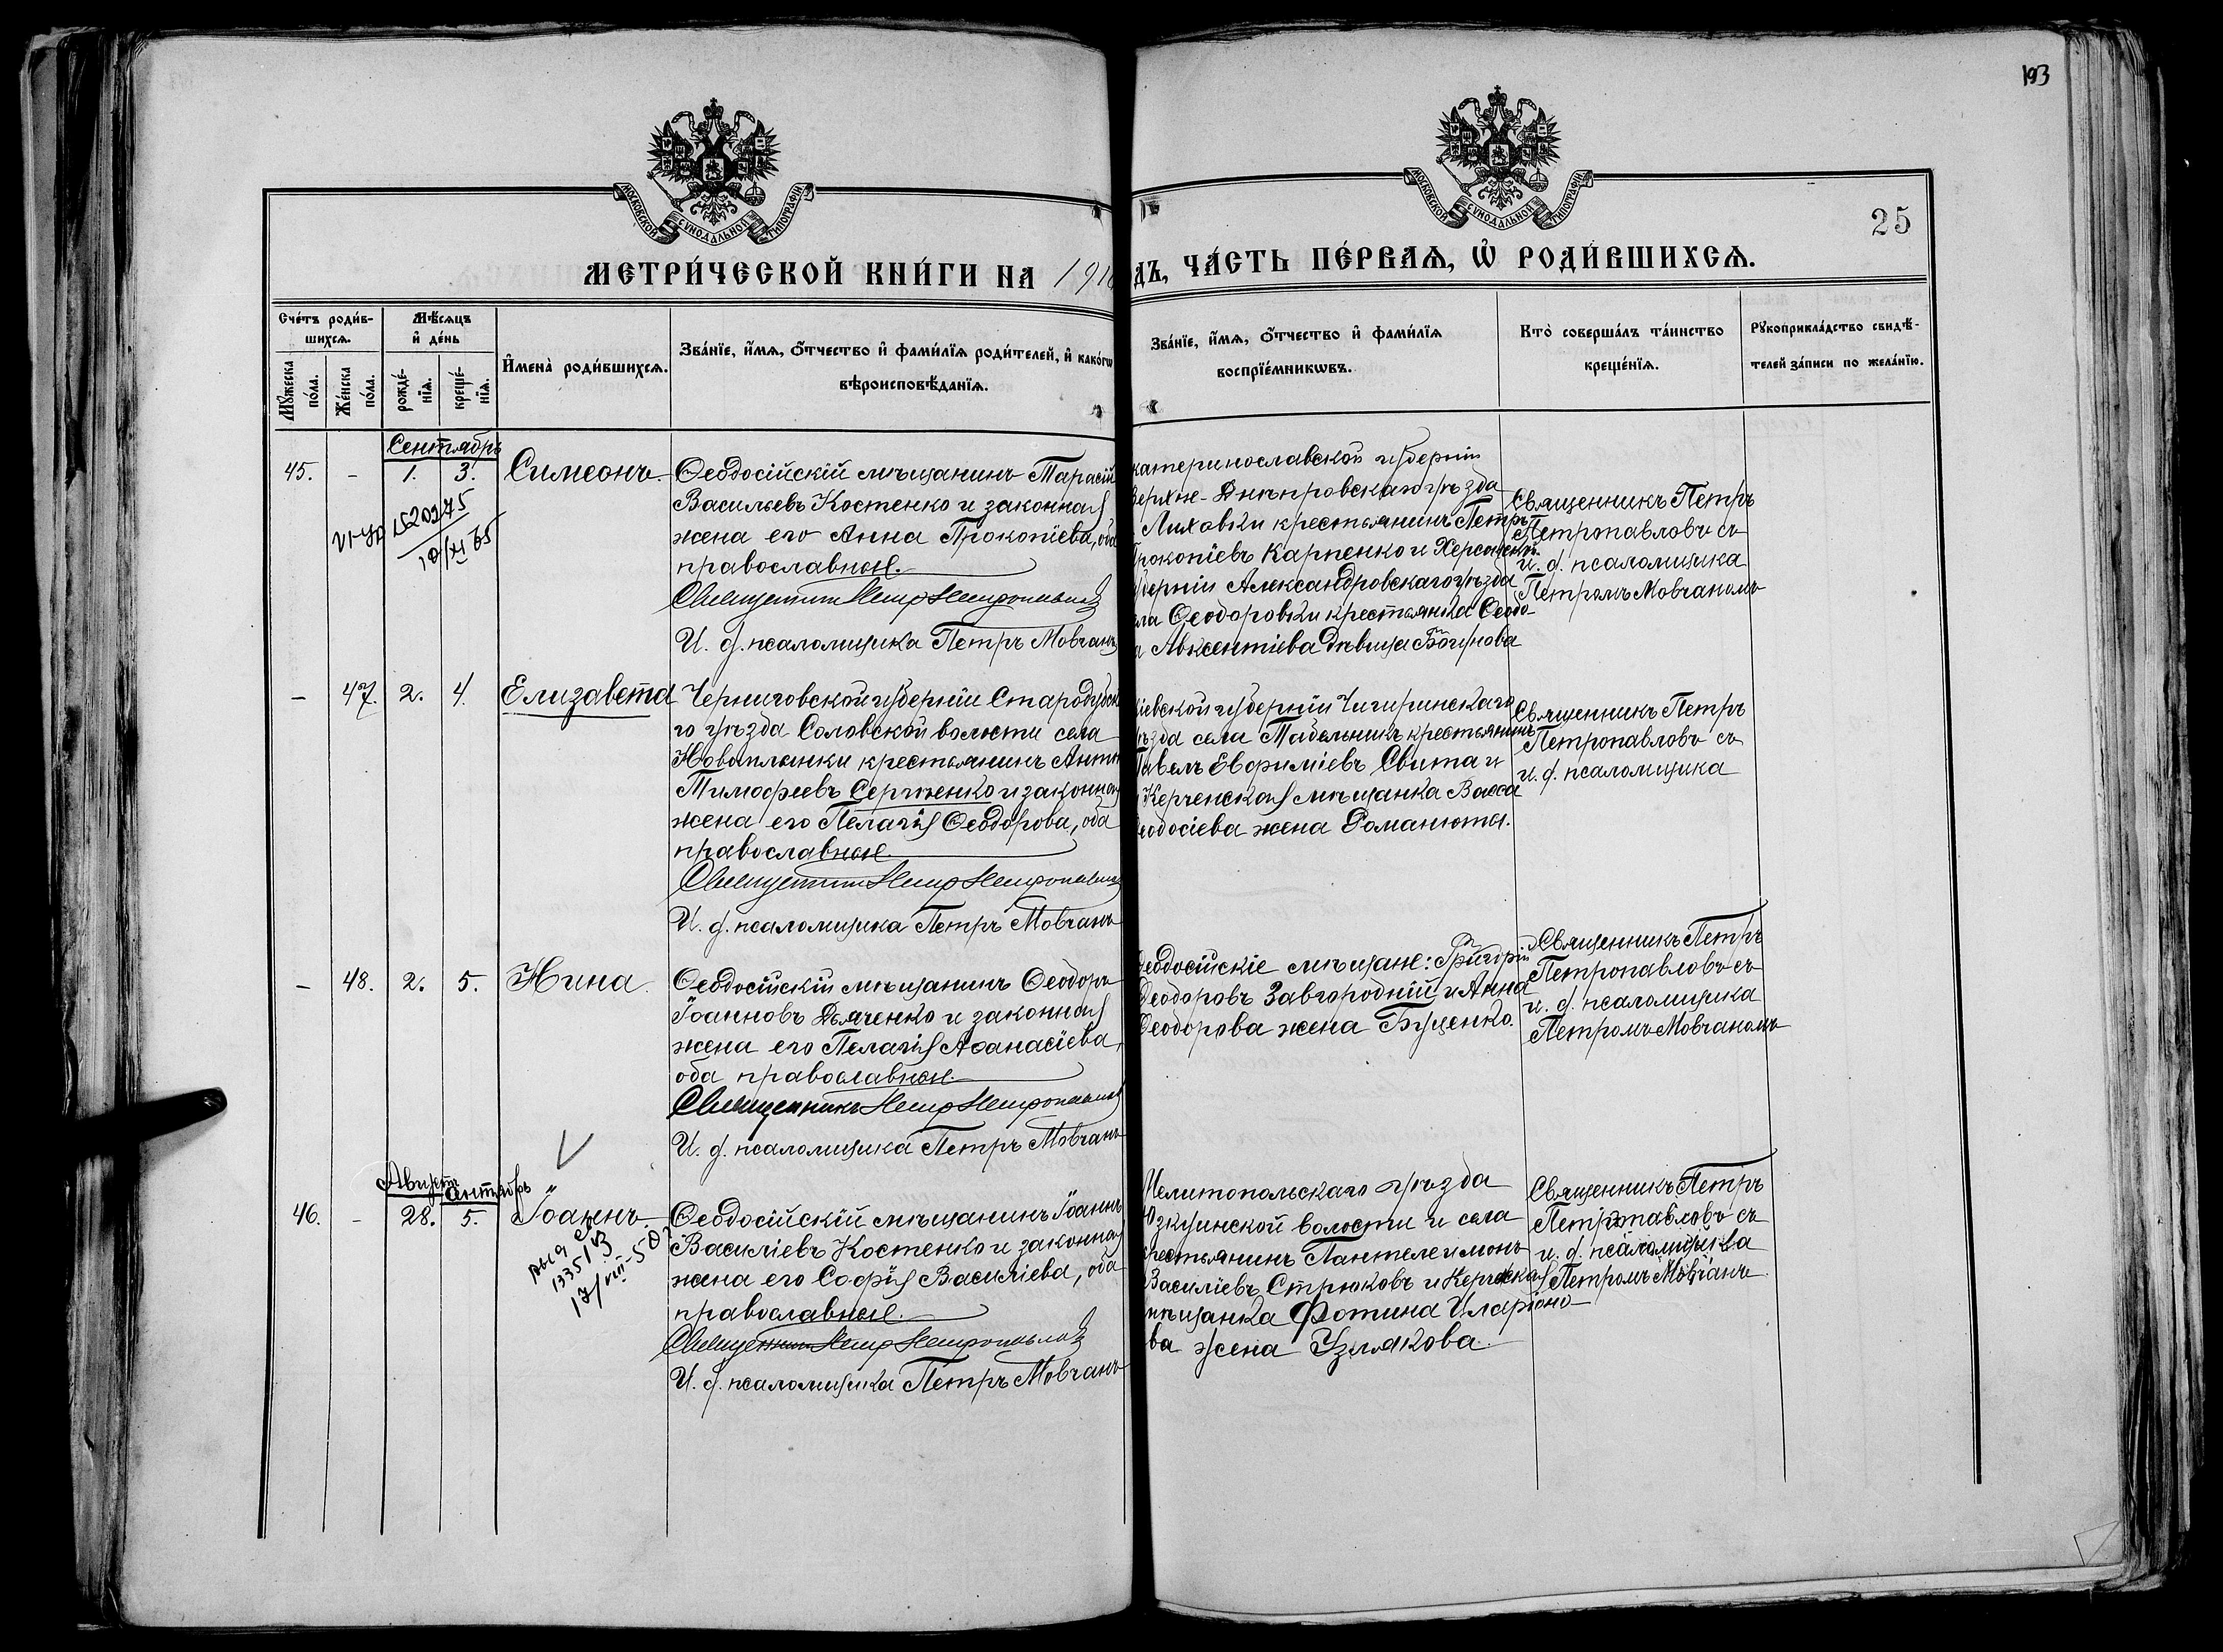 193
МОСКОВСКОЙ СѴНОДАЛЬНОЙ ТИПОГРАФІИ
МОСКОВСКОЙ СѴНОДАЛЬНОЙ ТИПОГРАФІИ
25
МЕТРИ́ЧЕСКОЙ КНИ́ГИ НА 191
ДЪ, ЧА́СТЬ ПЕ́РВАѦ, Ѡ҆ РОДИ́ВШИХСѦ.
Сче́тъ роди́в-
шихсѧ.
Мѣ́сѧцъ
и҆ де́нь
Мꙋ́жеска
по́ла.
Же́нска
по́ла.
рожде́-
нїѧ.
креще́-
нїѧ.
И҆мена̀ роди́вшихсѧ.
Зва́нїе, и҆́мѧ, ѻ҆́тчество и҆ фами́лїѧ роди́телей, и҆ како́гѡ
вѣроисповѣ́данїѧ.
Зва́нїе, и҆́мѧ, ѻ҆́тчество и҆ фами́лїѧ
воспрїе́мникѡвъ.
Кто̀ соверша́лъ та́инство
креще́нїѧ.
Рꙋкоприкла́дство свидѣ́-
телей за́писи по жела́нїю.
Сентябрь
45. - 1. 3. Симеонъ.
Ѳеодосійскій мѣщанинъ Тарасій
Васильевъ Костенко и законная
жена его Анна Прокопіева, оба
православные.
Священникъ Петръ Петропавловъ
И. д. псаломщика Петръ Мовчанъ
катеринославской губерніи
Верхне-Днѣпровскаго уѣзда
Лиховки крестьянинъ Петръ
Прокопіевъ Карпенко и Херсонской
губерніи Александровскаго уѣзда
ла Ѳеодоровки крестьянка Ѳеодо-
Авксентіева дѣвица
Священникъ Петръ
Петропавловъ съ
и. д. псаломщика
Петромъ Мовчаномъ
- 47. 2. 4. Елизавета
Черниговской губерніи Стародубска
го уѣзда Соловской волости села
крестьянинъ
Тимофеевъ Сергиенко и законная
жена его Пелагія Ѳеодорова, оба
православные.
Священникъ Петръ Петропавловъ
И. д. псаломщика Петръ Мовчанъ
кіевской губерніи Чигиринскаго
уѣзда села крестьянинъ
Павелъ Евфиміевъ Свита и
Керченская мѣщанка Васса
Ѳеодосіева жена Романюты.
Священникъ Петръ
Петропавловъ съ
и. д. псаломщика
- 48. 2. 5. Нина.
Ѳеодосійскій мѣщанинъ Ѳеодоръ
Іоанновъ Дьяченко и законная
жена его Пелагія Аѳанасіева,
оба православные.
Священникъ Петръ Петропавловъ
И. д. псаломщика Петръ Мовчанъ
Ѳеодосійскіе мѣщане: Григорій
Ѳеодоровъ Завгородній и Анна
Ѳеодорова жена Буценко.
Священникъ Петръ
Петропавловъ съ
и. д. псаломщика
Петромъ Мовчаномъ
Августъ Сентябрь
46. - 28. 5. Іоаннъ.
Ѳеодосійскій мѣщанинъ Іоаннъ
Василіевъ Костенко и законная
жена его Софія Василіева, оба
православные.
Священникъ Петръ Петропавловъ
И. д. псаломщика Петръ Мовчанъ
Мелитопольскаго уѣзда
волости и села
крестьянинъ Пантелеимонъ
Василіевъ Стрюковъ и Керченская
мѣщанка Фотина Иларіоно-
ва жена Узлякова.
Священникъ Петръ
Петропавловъ съ
и. д. псаломщика
Петромъ Мовчанъ